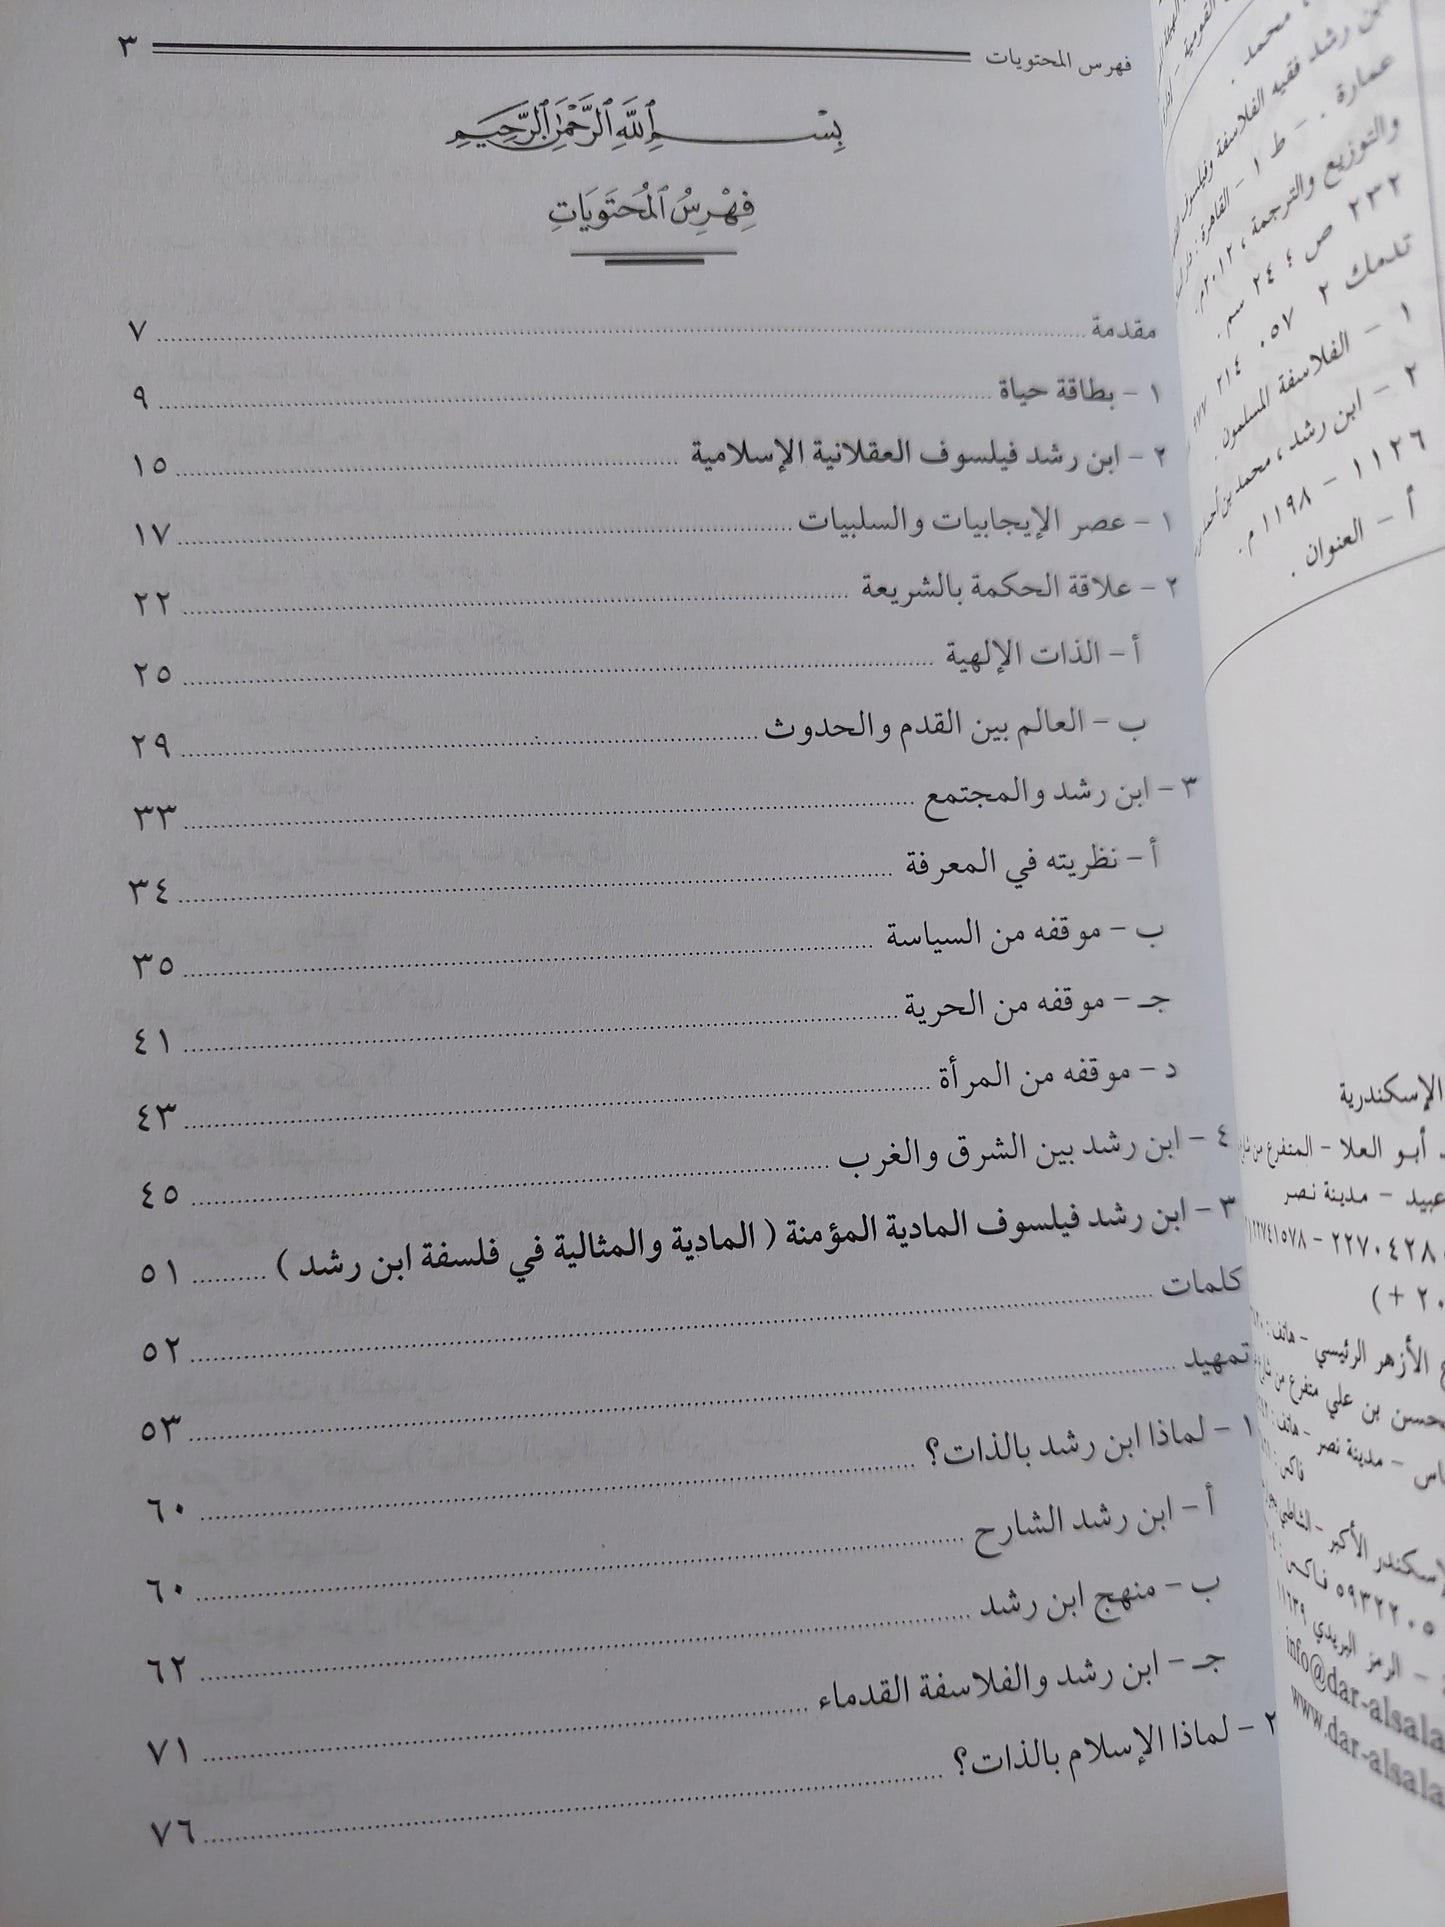 فهرس المحتويات ٣
بِسْمِ اللَّهِ الرَّحْمَٰنِ الرَّحِيمِ
فِهْرِسُ المُحْتَوَيَاتِ
مقدمة ٧
١ - بطاقة حياة ٩
٢ - ابن رشد فيلسوف العقلانية الإسلامية ١٥
١ - عصر الإيجابيات والسلبيات ١٧
٢ - علاقة الحكمة بالشريعة ٢٢
أ - الذات الإلهية ٢٥
ب - العالم بين القدم والحدوث ٢٩
٣ - ابن رشد والمجتمع ٣٣
أ - نظريته في المعرفة ٣٤
ب - موقفه من السياسة ٣٥
جـ - موقفه من الحرية ٤١
د - موقفه من المرأة ٤٣
٤ - ابن رشد بين الشرق والغرب ٤٥
٣ - ابن رشد فيلسوف المادية المؤمنة ( المادية والمثالية في فلسفة ابن رشد ) ٥١
كلمات ٥٢
تمهيد ٥٣
١ - لماذا ابن رشد بالذات؟ ٦٠
أ - ابن رشد الشارح ٦٠
ب - منهج ابن رشد ٦٢
جـ - ابن رشد والفلاسفة القدماء ٧١
٢ - لماذا الإسلام بالذات؟ ٧٦
محمد .
ابن رشد فقيه الفلاسفة وفيلسوف
عمارة . - ط ١ - القاهرة :
والتوزيع والترجمة ، ٢٠١٢م.
٢٣٢ ص ؛ ٢٤ سم .
تدمك ٢ ٠٥٧ ٢١٤ ٩٧٧
١ - الفلاسفة المسلمون .
٢ - ابن رشد ، محمد بن أحمد
١١٢٦ - ١١٩٨م .
أ - العنوان .
الإسكندرية
أبو العلا - المتفرع من
عبيد - مدينة نصر
( + ٢٠
الأزهر الرئيسي - هاتف :
بن علي متفرع من شارع
مدينة نصر - هاتف :
فاكس :
الأكبر - الشاطبي
٥٩٣٢٢٠٥ فاكس :
الرمز البريدي ١١٦٣٩
info@dar-alsala
www.dar-alsala